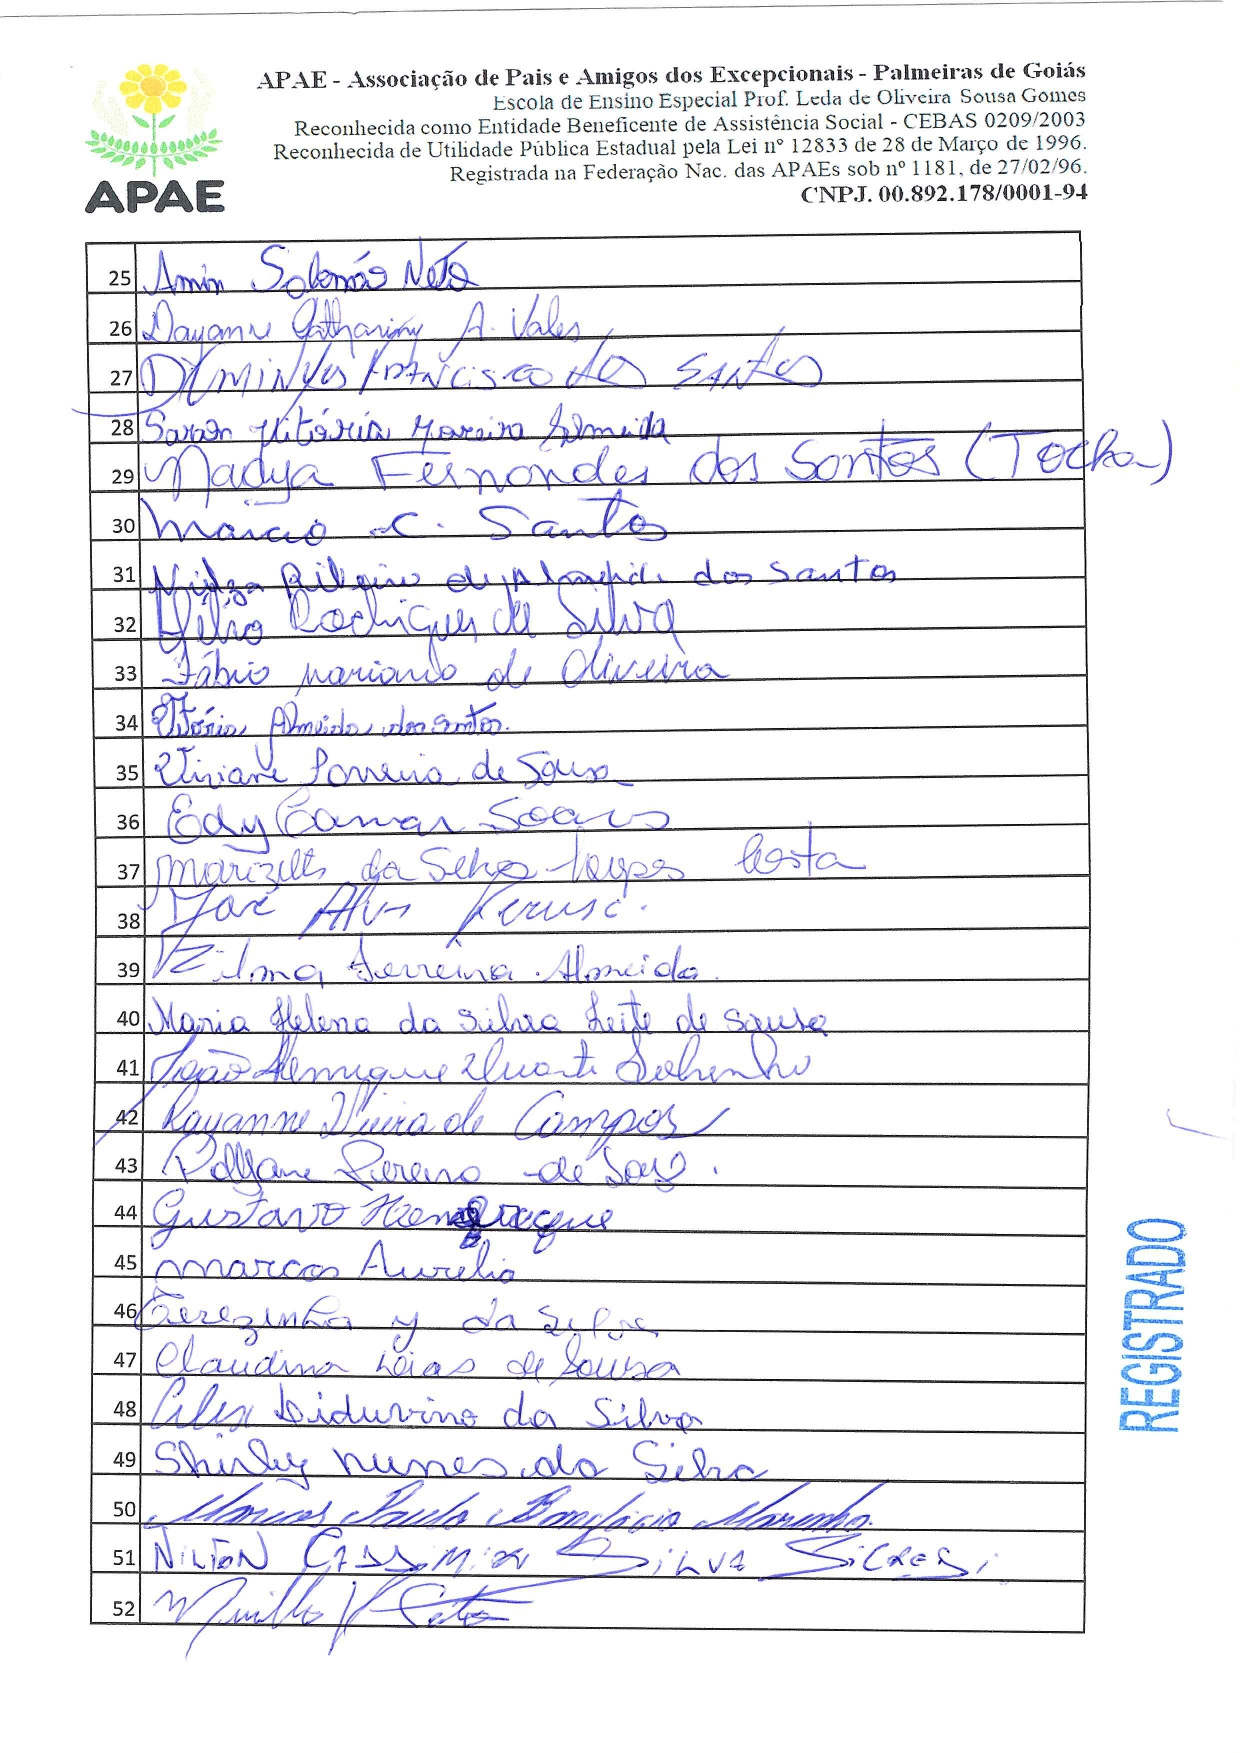 APAE - Associação de Pais e Amigos dos Excepcionais - Palmeiras de Goiás
Escola de Ensino Especial Prof. Leda de Oliveira Sousa Gomes
Reconhecida como Entidade Beneficente de Assistência Social - CEBAS 0209/2003
Reconhecida de Utilidade Pública Estadual pela Lei nº 12833 de 28 de Março de 1996.
Registrada na Federação Nac. das APAEs sob nº 1181, de 27/02/96.
CNPJ. 00.892.178/0001-94
APAE
25 Amin Salomão Neto
26 Dayanne A. Vales
27 Francisco dos Santos
28 Vitória Moreira Almeida
29 Nadya Fernandes dos Santos (Tocha)
30 Marcio C. Santos
31 Ribeiro de Almeida dos Santos
32 Hélio Rodrigues da Silva
33 Fábio Mariano de Oliveira
34 Vitória Almeida dos Santos.
35 Viviane Ferreira de Sousa
36 Edy Camar Soares
37 Marizette da Silva Lopes Costa
38 José Alves
39 Zilma Ferreira Almeida.
40 Maria Helena da Silva Leite de Sousa
41 João Henrique Duarte Sobrinho
42 Rayanne Vieira de Campos
43 Pollyane Pereira de
44 Gustavo Henrique
45 Marcos Aurelio
46 Terezinha da Silva
47 Claudina de Sousa
48 da Silva
49 Shirley Nunes da Silva
50 Marcos Paulo Bonifácio Marinho.
51 Nilton Cassimiro Silva
52 Murillo
REGISTRADO